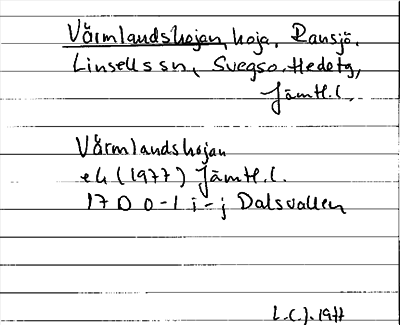 Värmlandskojan, koja, Ransjö,
Linsells sn, Svegso. Hedetg,
Jämtl.l.
Värmlandskojan
ek (1977) Jämtl.l.
17 D 0-1 i-j Dalsvallen
L.C.J. 1977